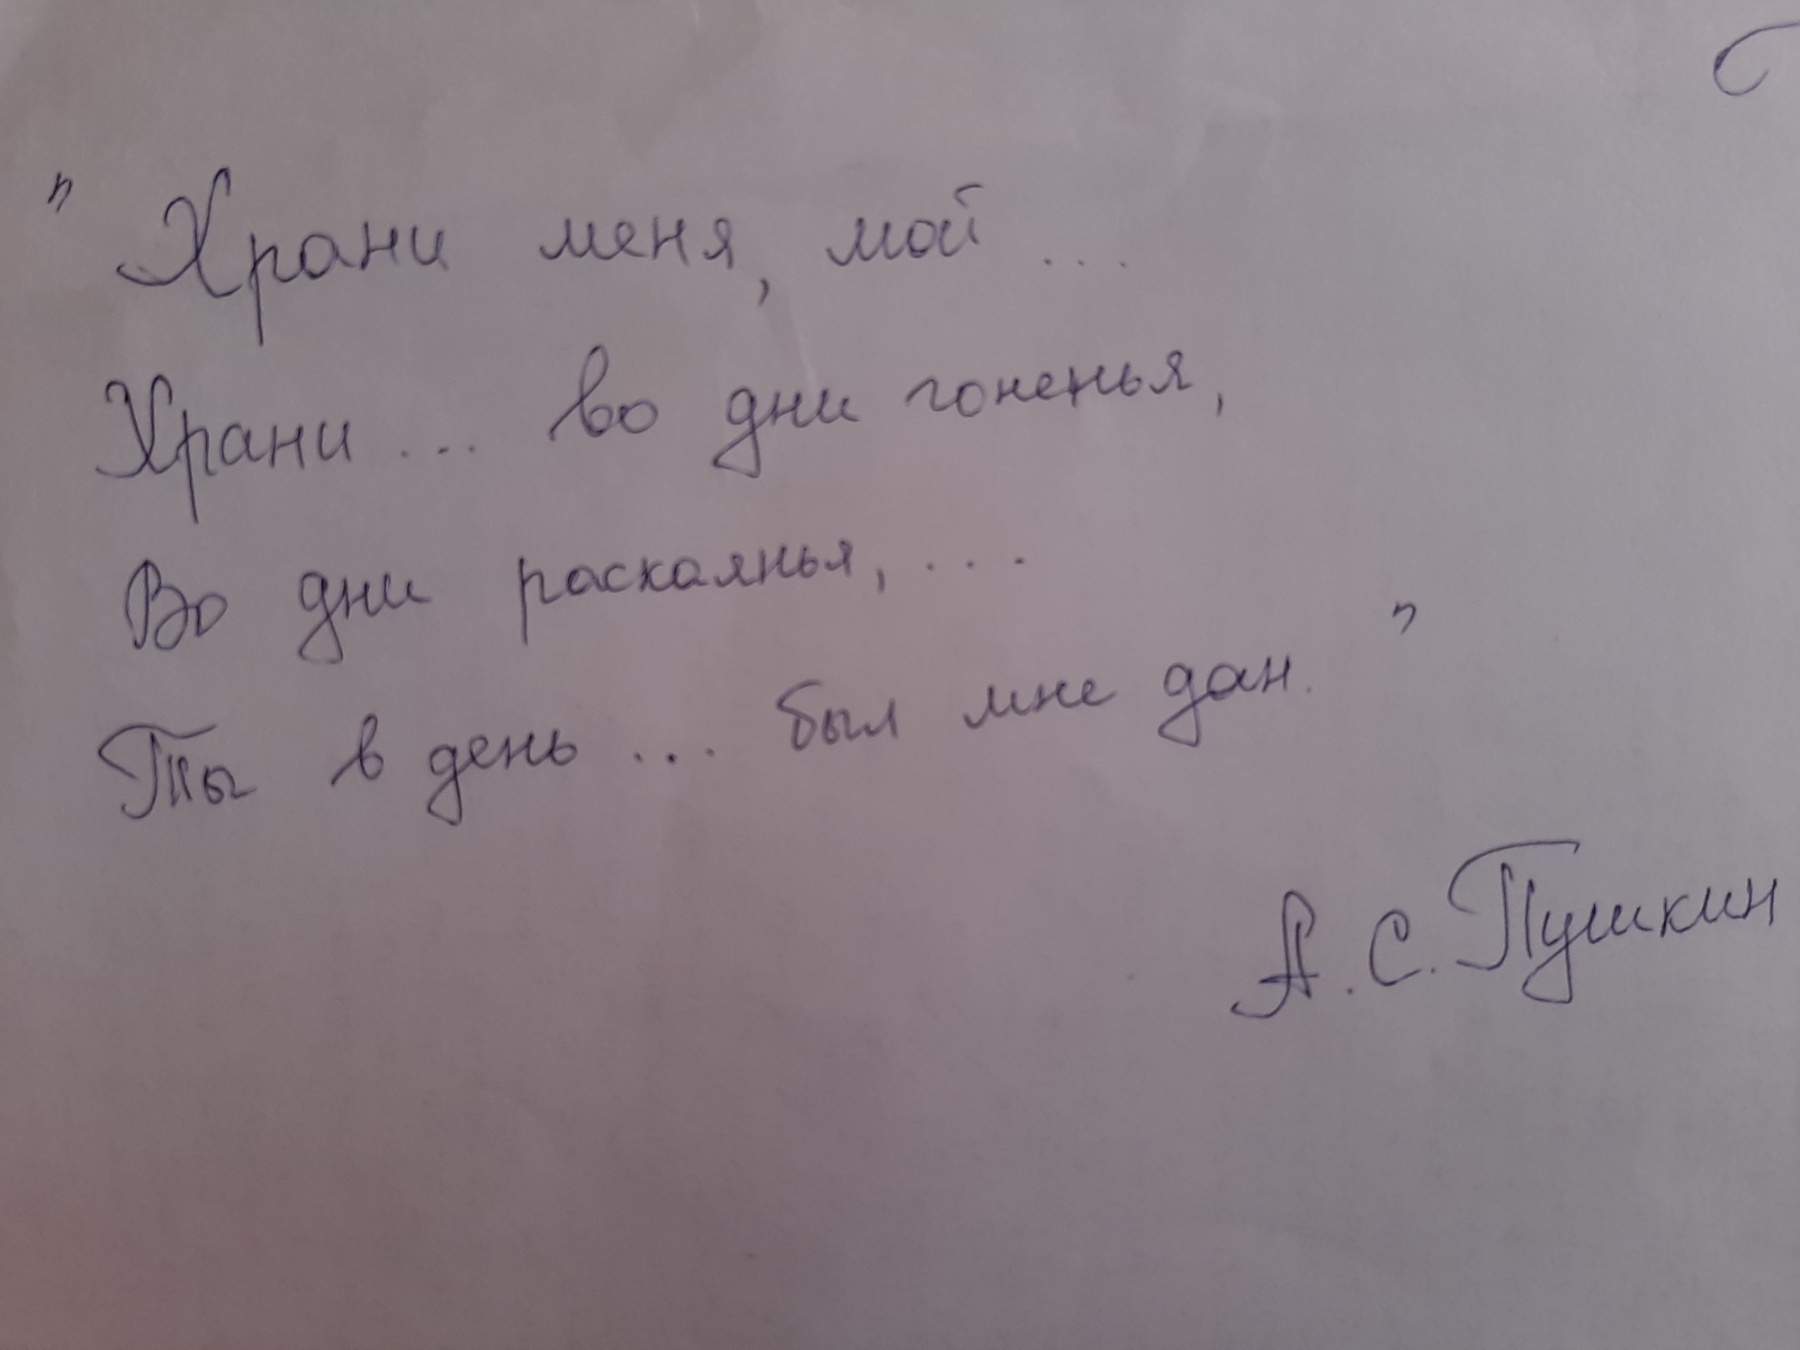 " Храни меня, мой ...
Храни ... во дни гоненья,
Во дни раскаянья, ....
Ты в день ... был мне дан. "
А. С. Пушкин